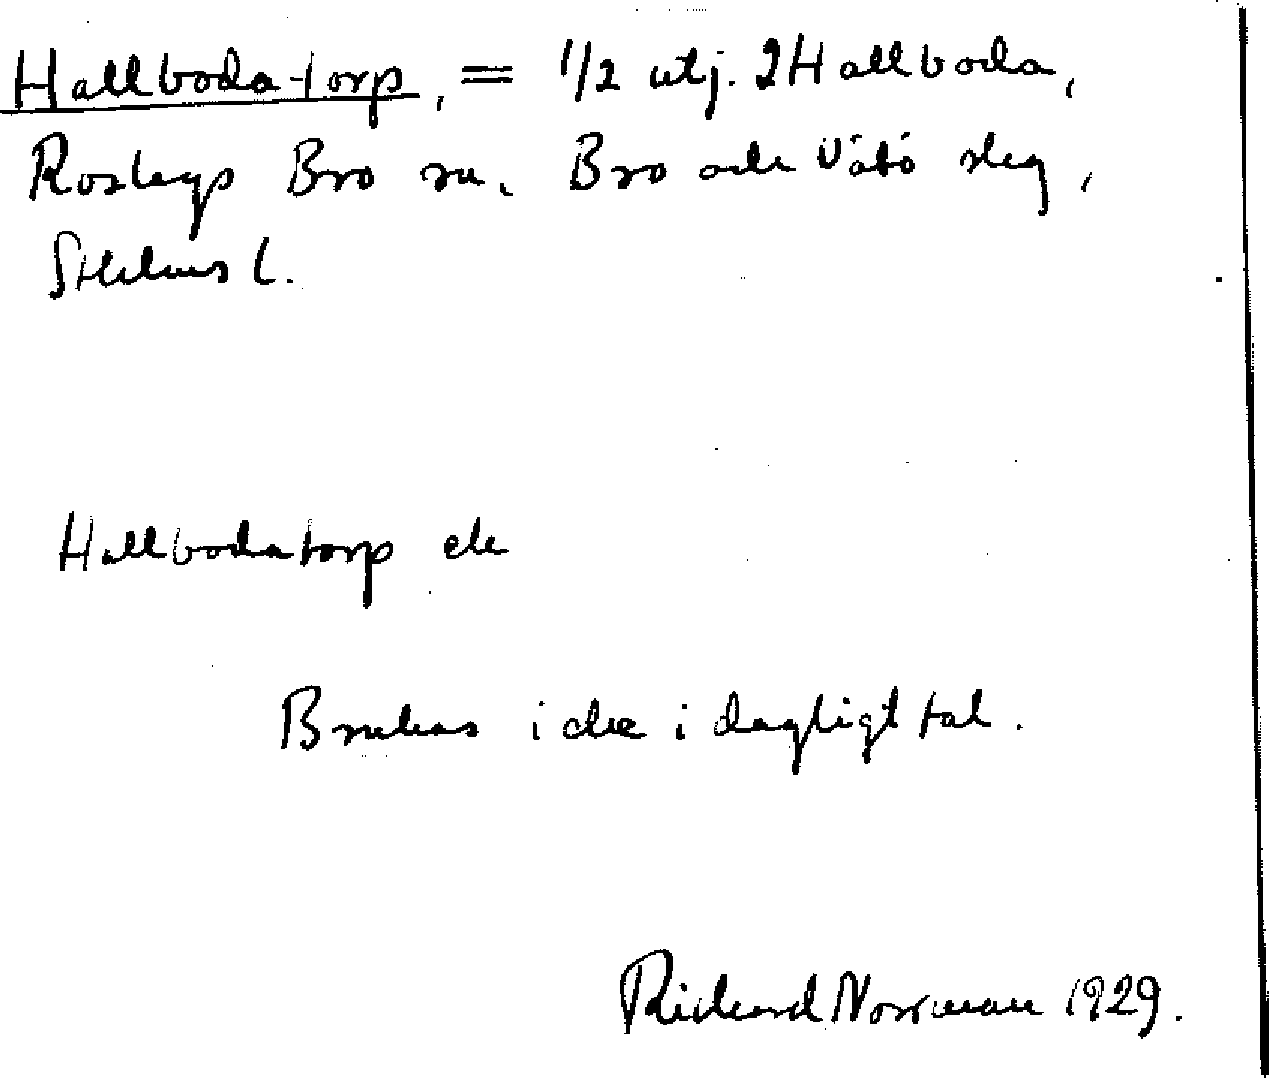 Hallboda-torp, = 1/2 utj. 2 Hallboda,
Roslags Bro sn. Bro och Vätö slag,
Sthlms l.
Hallbodatorp
Brukas icke i dagligt tal.
Richard Norrman 1929.